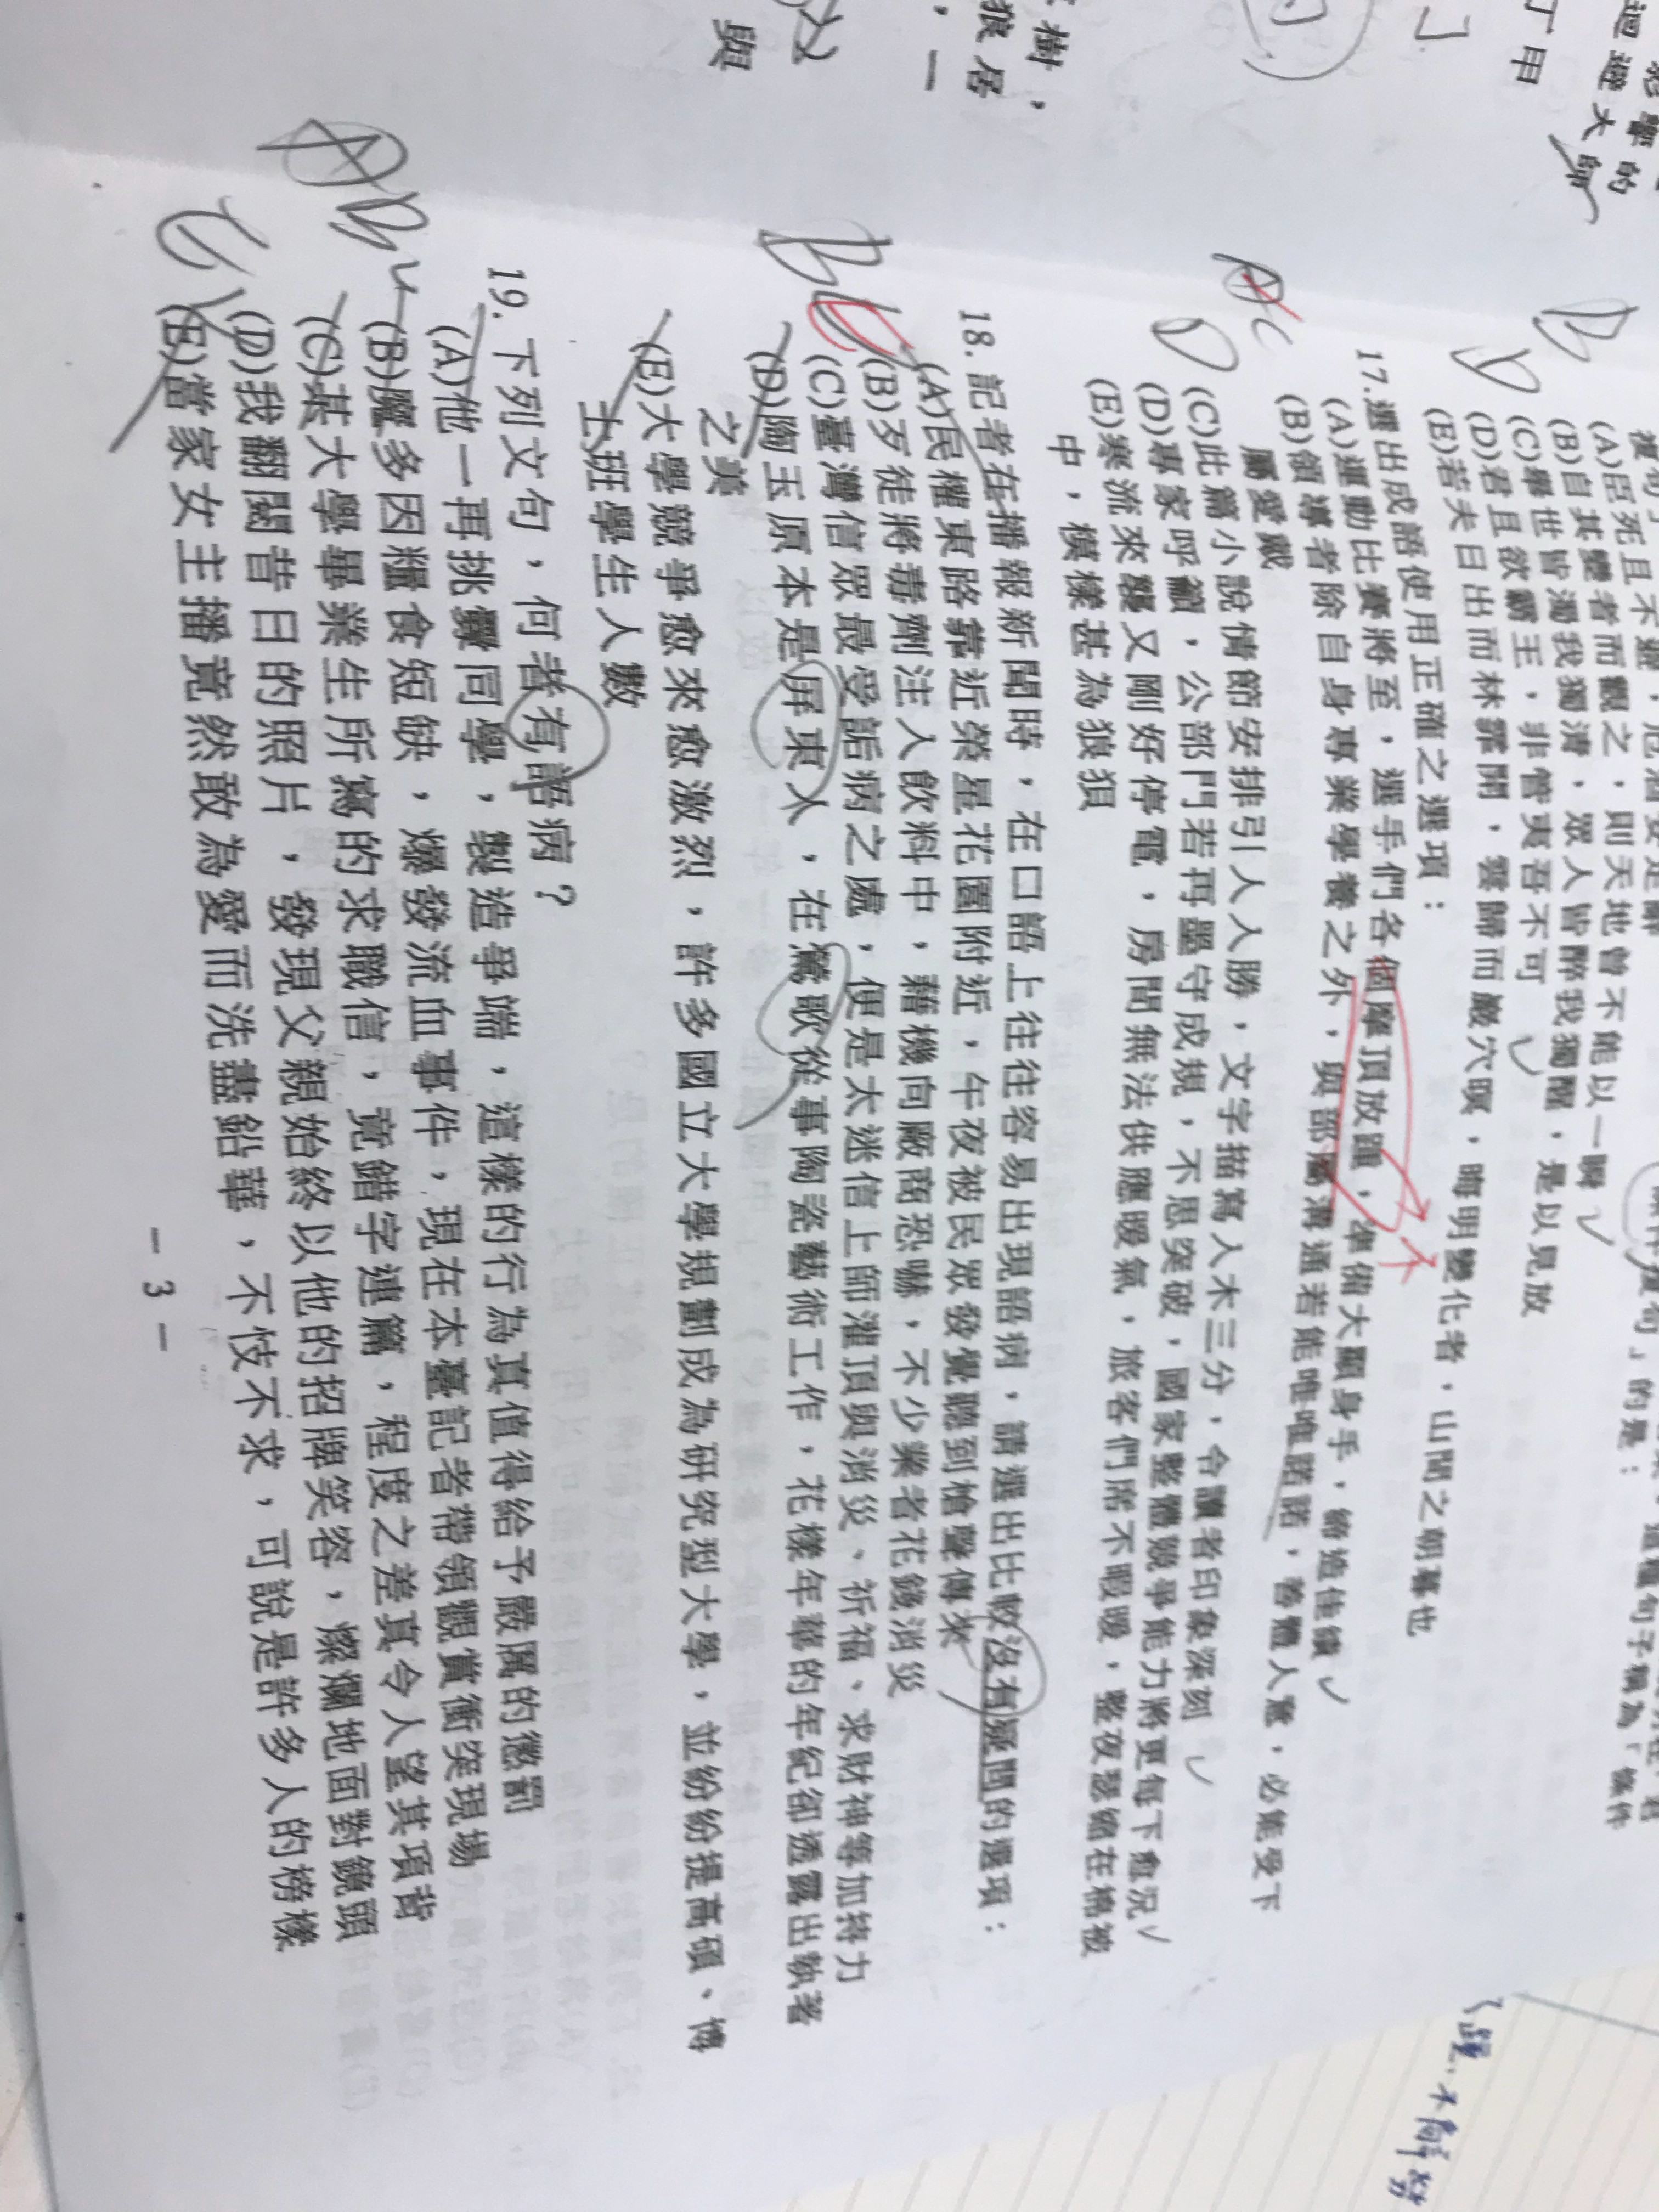 (A)臣死且不避，卮酒安足辭
(B)自其變者而觀之，則天地曾不能以一瞬
(C)舉世皆濁我獨清，眾人皆醉我獨醒，是以見放
(D)君且欲霸王，非管夷吾不可
(E)若夫日出而林霏開，雲歸而巖穴暝，晦明變化者，山間之朝暮也
17.選出成語使用正確之選項：
(A)運動比賽將至，選手們各個摩頂放踵，準備大顯身手，締造佳績
(B)領導者除自身專業學養之外，與部屬溝通若能唯唯諾諾，善體人意，必能受下
屬愛戴
(C)此篇小說情節安排引人入勝，文字描寫入木三分，令讀者印象深刻
(D)專家呼籲，公部門若再墨守成規，不思突破，國家整體競爭能力將更每下愈況
(E)寒流來襲又剛好停電，房間無法供應暖氣，旅客們席不暇暖，整夜瑟縮在棉被
中，模樣甚為狼狽
18.記者在播報新聞時，在口語上往往容易出現語病，請選出比較沒有疑問的選項：
(A)民權東路靠近榮星花園附近，午夜被民眾發覺聽到槍聲傳來
(B)歹徒將毒劑注入飲料中，藉機向廠商恐嚇，不少業者花錢消災
(C)臺灣信眾最受詬病之處，便是太迷信上師灌頂與消災、祈福、求財神等加持力
(D)陶玉原本是屏東人，在鶯歌從事陶瓷藝術工作，花樣年華的年紀卻透露出執著
之美
(E)大學競爭愈來愈激烈，許多國立大學規劃成為研究型大學，並紛紛提高碩、博
士班學生人數
19.下列文句，何者有語病？
(A)他一再挑釁同學，製造爭端，這樣的行為真值得給予嚴厲的懲罰
(B)廬多因糧食短缺，爆發流血事件，現在本臺記者帶領觀賞衝突現場
(C)某大學畢業生所寫的求職信，竟錯字連篇，程度之差真令人望其項背
(D)我翻閱昔日的照片，發現父親始終以他的招牌笑容，燦爛地面對鏡頭
(E)當家女主播竟然敢為愛而洗盡鉛華，不忮不求，可說是許多人的榜樣
－3－